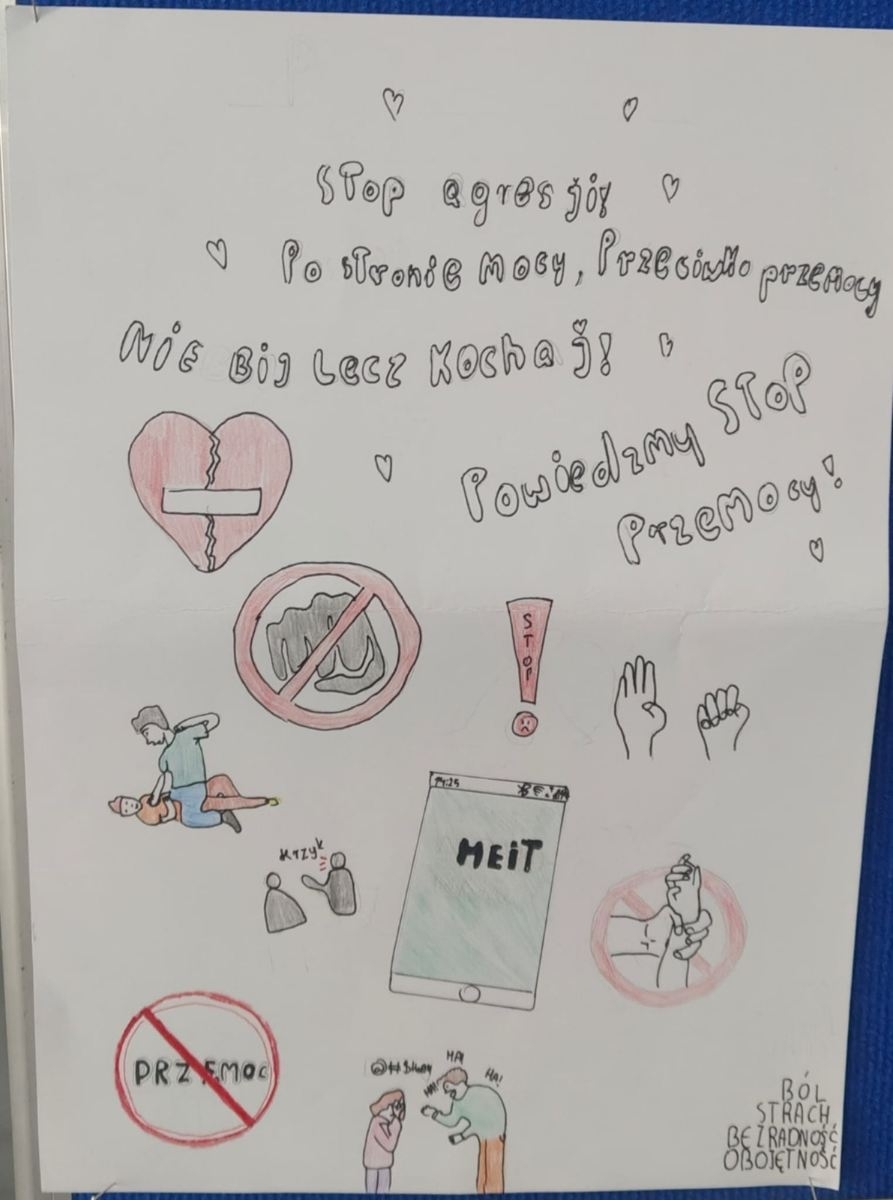 STOP agresji!
Po stronie mocy, Przeciwko przemocy
NIE BIJ LECZ KOCHAJ!
POWIEDZMY STOP
PRZEMOCY!
STOP
14:25
HEIT
Krzyk
PRZEMOC
HA!
HA!
HA!
BÓL
STRACH
BEZRADNOŚĆ
OBOJĘTNOŚĆ